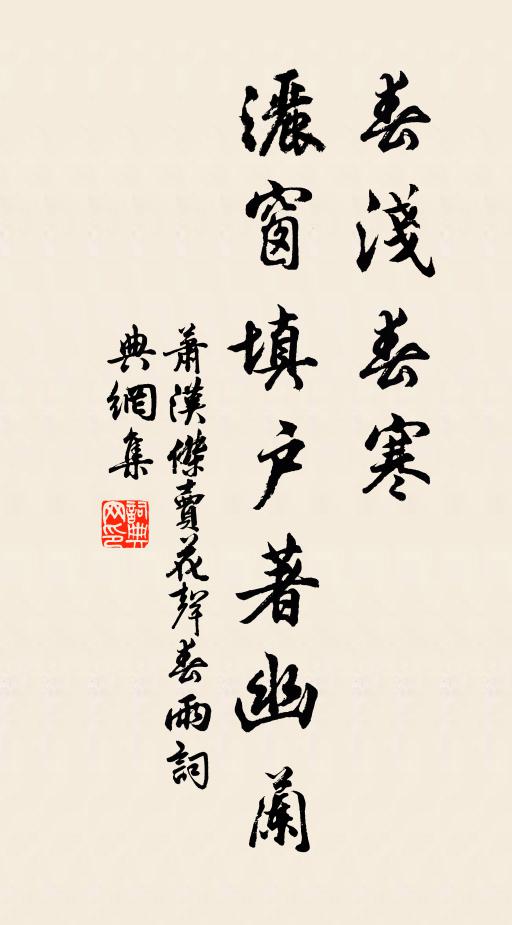 春淺春寒
灑窗填户著幽蘭
蕭漢傑賣花聲春雨詞
典網集
詞典网印